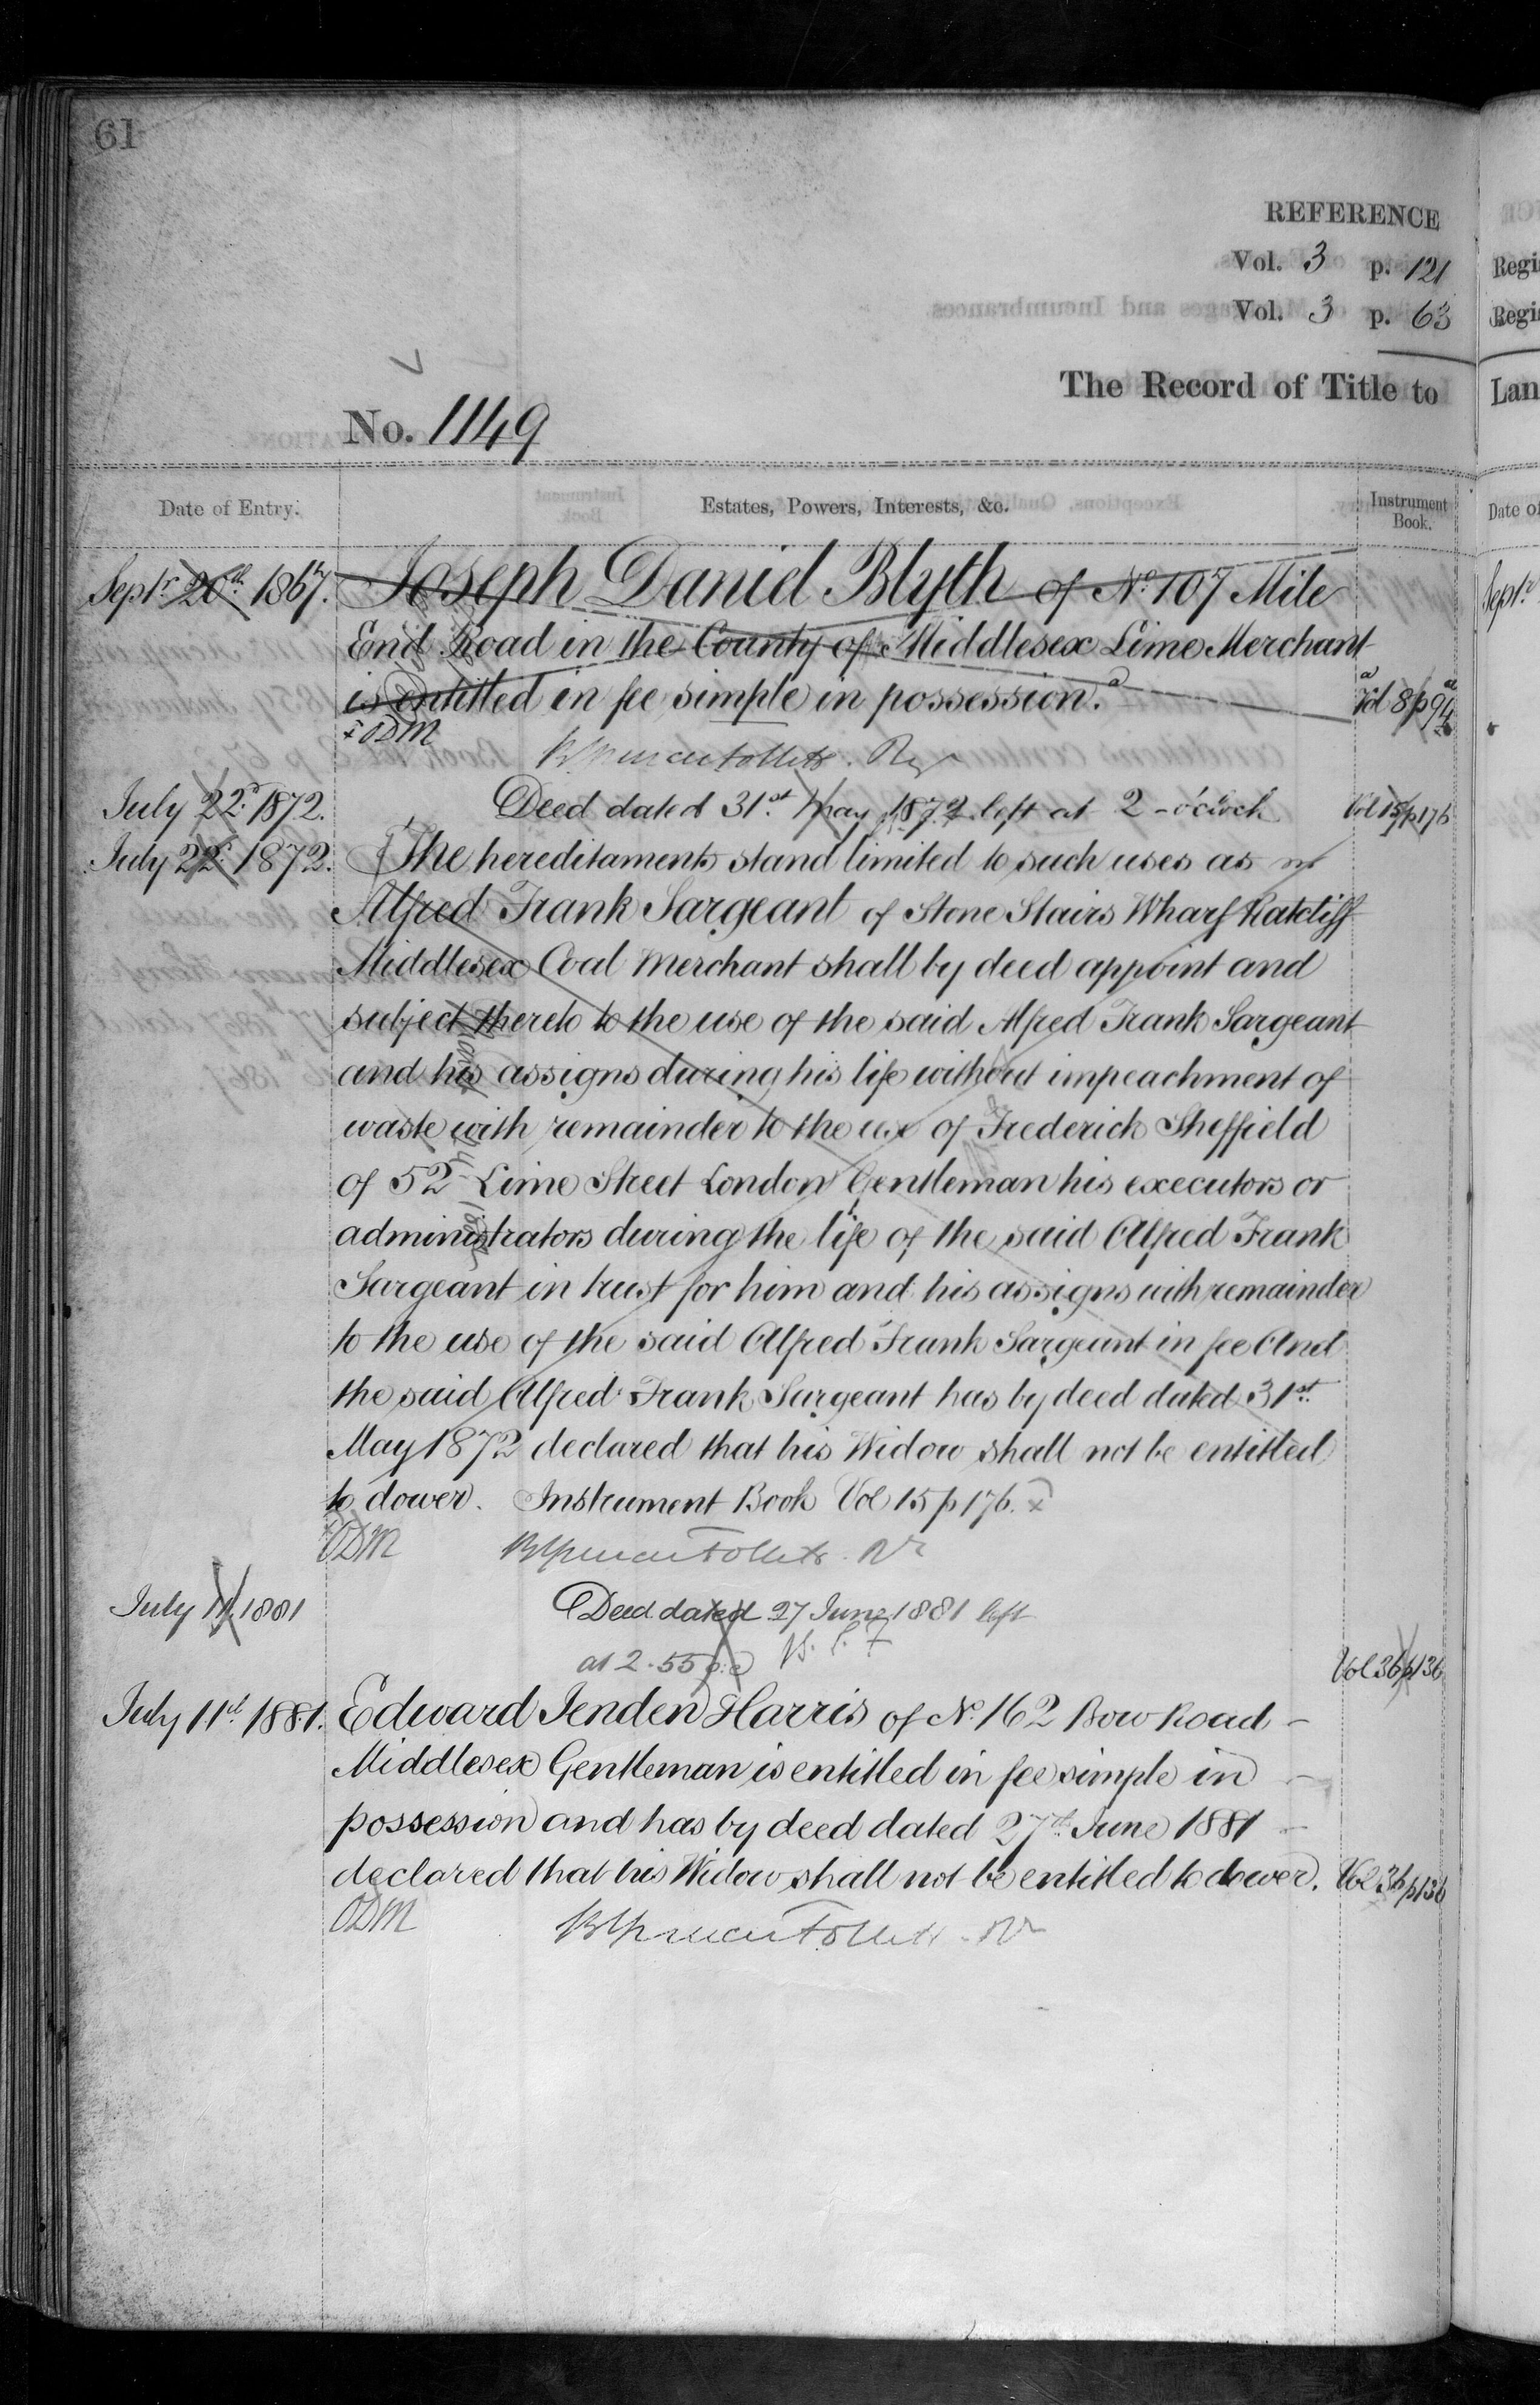 61
REFERENCE
Vol. 3 p. 121
Vol. 3 p. 63
The Record of Title to
No. 1149
Date of Entry.
Estates, Powers, Interests, &c.
Instrument Book.
Septr. 20th 1867. Joseph Daniel Blyth of No. 107 Mile
End Road in the County of Middlesex Lime Merchant
is entitled in fee simple in possession. Vol 8 p 94
ODM
July 22d 1872. Deed dated 31st. May 1872 left at 2 - o'clock Vol 15 p 176
July 22d 1872. The hereditaments stand limited to such uses as
Alfred Frank Sargeant of Stone Stairs Wharf Ratcliff
Middlesex Coal Merchant shall by deed appoint and
subject thereto to the use of the said Alfred Frank Sargeant
and his assigns during his life without impeachment of
waste with remainder to the use of Frederick Sheffield
of 52 Lime Street London Gentleman his executors or
administrators during the life of the said Alfred Frank
Sargeant in trust for him and his assigns with remainder
to the use of the said Alfred Frank Sargeant in fee And
the said Alfred Frank Sargeant has by deed dated 31st.
May 1872 declared that his Widow shall not be entitled
to dower. Instrument Book Vol 15 p 176.
ODM
July 11 1881 Deed dated 27 June 1881 left
at 2.55 Vol 36 p 136
July 11th 1881. Edward Jenden Harris of No. 162 Bow Road
Middlesex Gentleman is entitled in fee simple in
possession and has by deed dated 27th June 1881
declared that his Widow shall not be entitled to dower. Vol 36 p 136
ODM
Regi
Regi
Lan
Date o
Septr